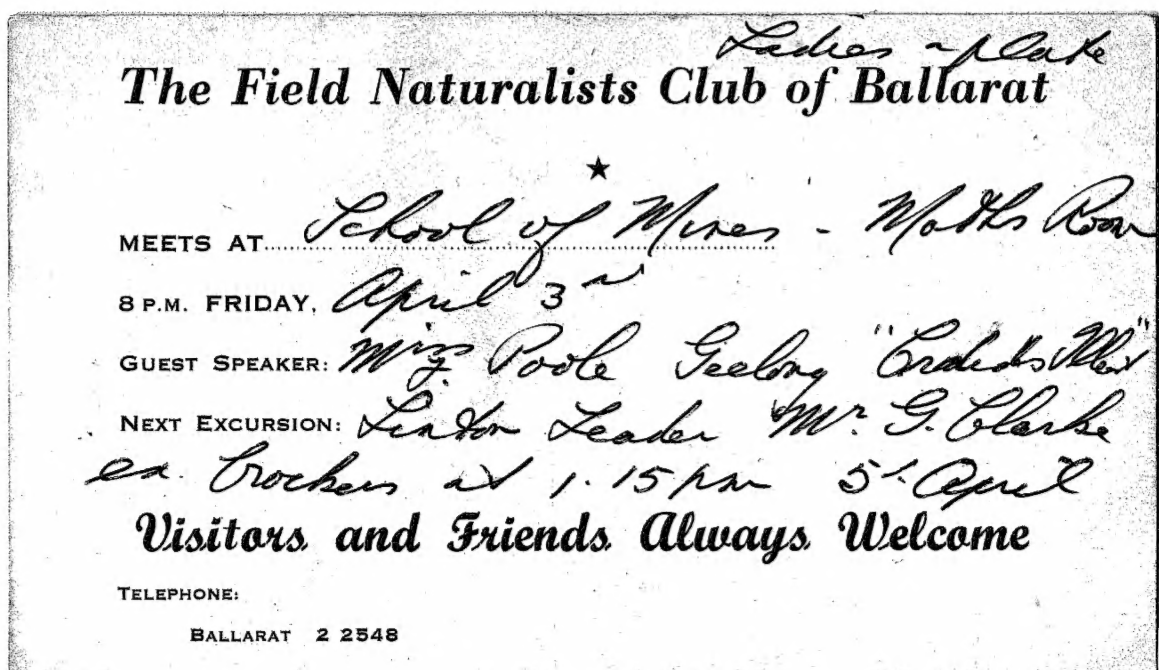 Ladies a plate
The Field Naturalists Club of Ballarat
MEETS AT School of Mines - Maths Room
8 P.M. FRIDAY, April 3rd
GUEST SPEAKER: Poole Geelong
NEXT EXCURSION: Linton Leader Mr. G. Clarke
ex. Crockers at 1.15 pm 5th April
Visitors and Friends Always Welcome
TELEPHONE:
BALLARAT 2 2548